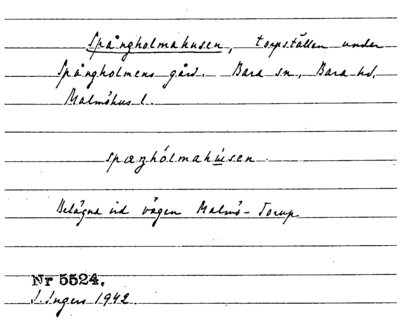 Spångholmahusen, torpställen under
Spångholmens gård. Bara sn., Bara hd.
Malmöhus l.
spæŋhólmahúsen
Belägna vid vägen Malmö - Torup.
Nr 5524.
I. Ingers 1942.